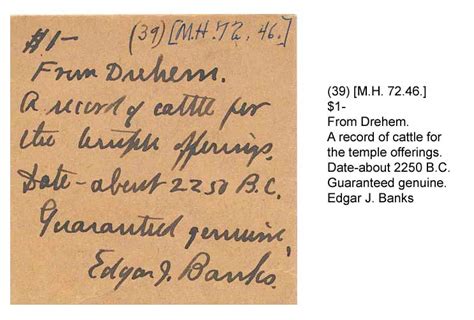 $1-   (39) [M.H. 72, 46.]
From Drehem.
A record of cattle for
the temple offerings.
Date-about 2250 B.C.
Guaranteed genuine,
Edgar J. Banks.
(39) [M.H. 72.46.]
$1-
From Drehem.
A record of cattle for
the temple offerings.
Date-about 2250 B.C.
Guaranteed genuine.
Edgar J. Banks